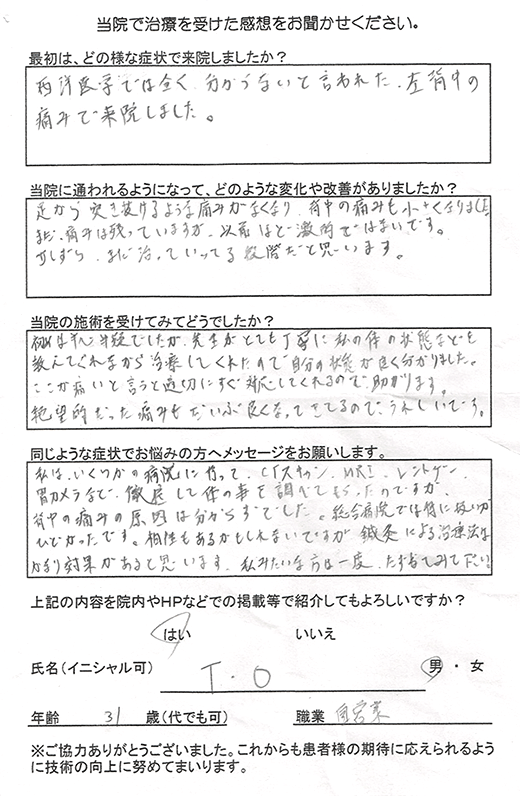 当院で治療を受けた感想をお聞かせください。
最初は、どの様な症状で来院しましたか？
西洋医学では全く、分からないと言われた、左背中の
痛みで来院しました。
当院に通われるようになって、どのような変化や改善がありましたか？
足から突き抜けるような痛みがなくなり、背中の痛みも小さくなりました
まだ、痛みは残っていますが、以前ほど激的ではないです。
少しずつ、まだ治っていってる段階だと思います。
当院の施術を受けてみてどうでしたか？
初めは半信半疑でしたが、先生がとても丁寧に私の体の状態などを
教えてくれながら治療してくれたので自分の状態が良く分かりました。
ここが痛いと言うと適切にすぐ対応してくれるので、助かります。
絶望的だった痛みもだいぶ良くなってきてるので、うれしいです。
同じような症状でお悩みの方へメッセージをお願いします。
私は、いくつかの病院に行って、CTスキャン、MRI、レントゲン、
胃カメラなど、徹底して体の事を調べてもらったのですが、
背中の痛みの原因は分からずでした。総合病院では特に扱いが
ひどかったです。相性もあるかもしれないですが鍼灸による治療法は
かなり効果があると思います、私みたいな方は一度、たずねてみて下さい。
上記の内容を院内やHPなどでの掲載等で紹介してもよろしいですか？
はい いいえ
氏名（イニシャル可） T.O 男・女
年齢 31 歳（代でも可） 職業 自営業
※ご協力ありがとうございました。これからも患者様の期待に応えられるよう
に技術の向上に努めてまいります。